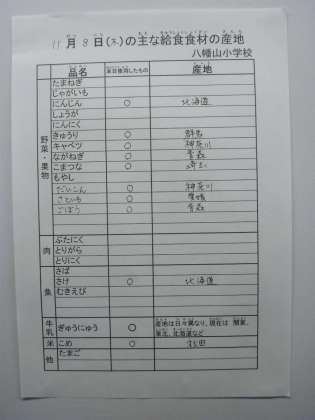 11月8日(木)の主な給食食材の産地
八幡山小学校
品名 本日使用したもの 産地
野菜・果物
たまねぎ
じゃがいも
にんじん ○ 北海道
しょうが
にんにく
きゅうり ○ 群馬
キャベツ ○ 神奈川
ながねぎ ○ 青森
こまつな ○ 埼玉
もやし
だいこん ○ 神奈川
さといも ○ 愛媛
ごぼう ○ 青森
肉
ぶたにく
とりがら
とりにく
魚
さば
さけ ○ 北海道
むきえび
牛乳 ぎゅうにゅう ○ 産地は日々異なり、現在は 関東、
東北、北海道など
米 こめ ○ 秋田
他 たまご